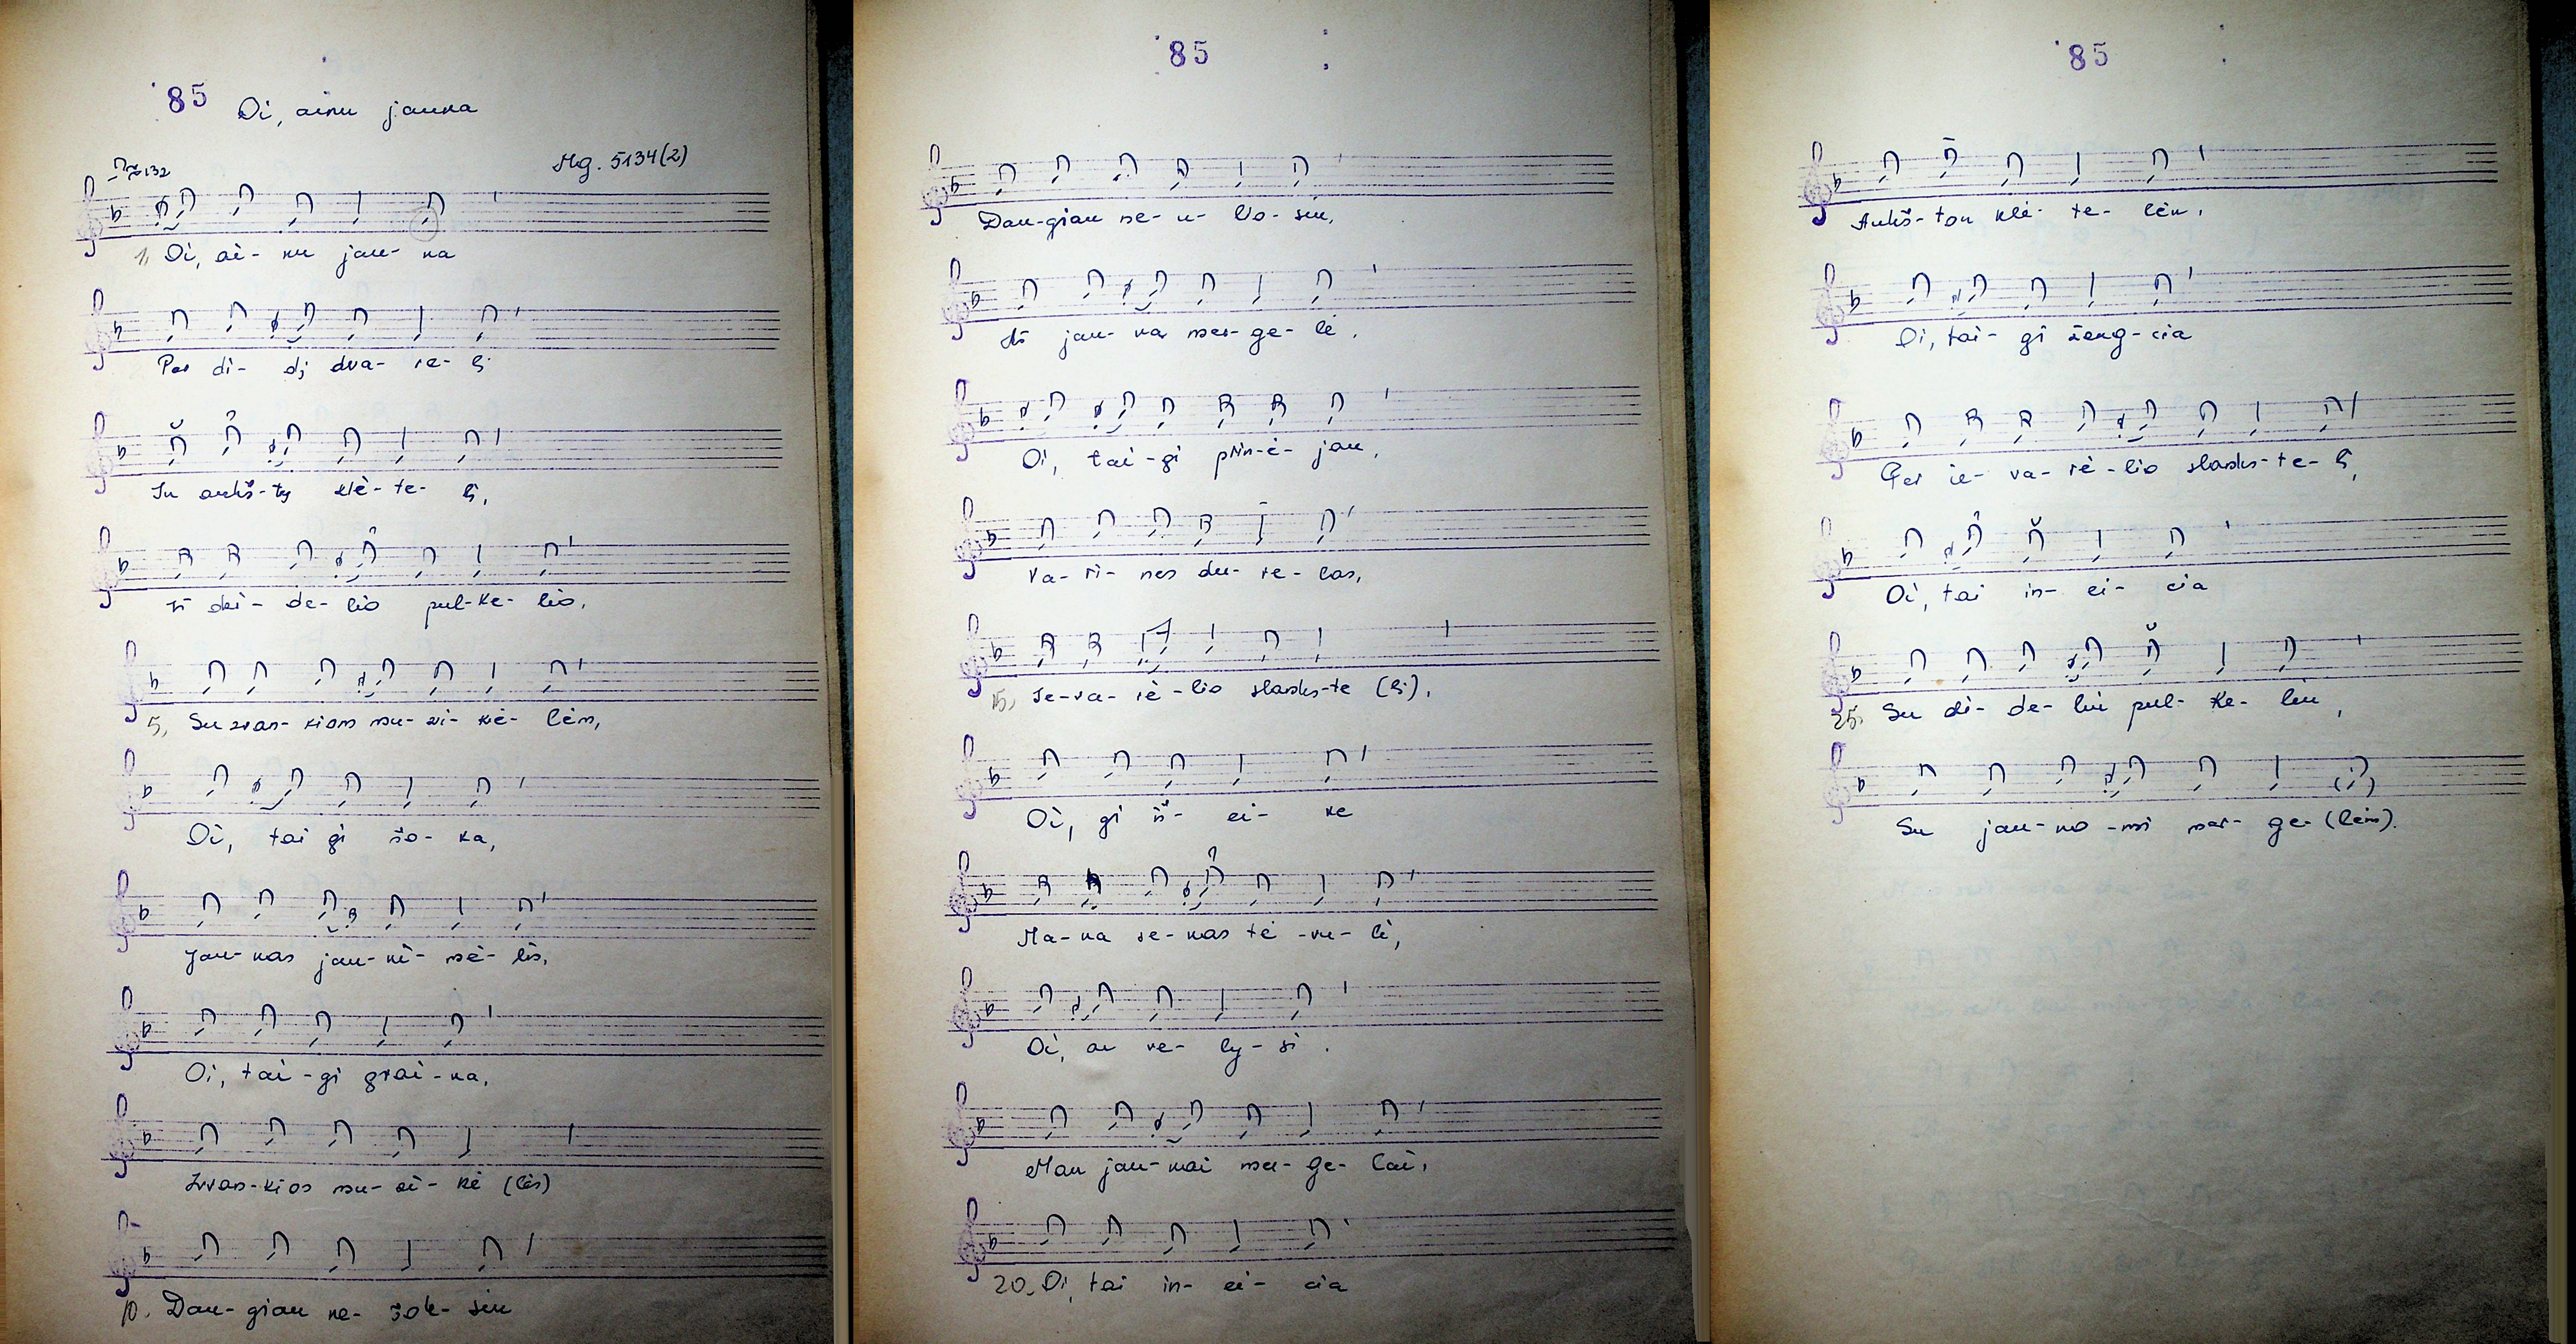 85 Oi, ainu jauna
Mg. 5134(2)
≈132
1, Oi, ai- nu jau- na
Per di- dį dva- re- lį
In aukš- tų klė- te- lį,
Iš dėi- de- lio pul- ke- lio,
5, Su zvan- kiom mu- zi- kė- lėm,
Oi, tai gi šo- ka,
Jau- nas jau- ni- mė- lis,
Oi, tai - gi grai - na,
Zvan- kios mu- zi- kė (lės)
10. Dau- gian ne- šok- siu
85
Dau- gian ne- u- lio- siu,
Aš jau- na mer- ge- lė,
Oi, tai - gi prin- ė- jau,
Va- ri- nes du- re- les,
15, Je- va- rė - lio slanks- te (lį),
Oi, gi iš- ei- ke
Ma- na se- nas tė - vu- li,
Oi, au ve- ly- si.
Man jau- nai mer- ge- lai,
20. Oi, tai in- ei- cia
85
Aukš- ton klė- te- lėn,
Oi, tai- gi ženg- cia
Per ie- va- rė - lio slanks- te- lį,
Oi, tai in- ei- cia
25, Su di- de- liu pul- ke- liu,
Su jau- no - mi mer- ge- (lėm).